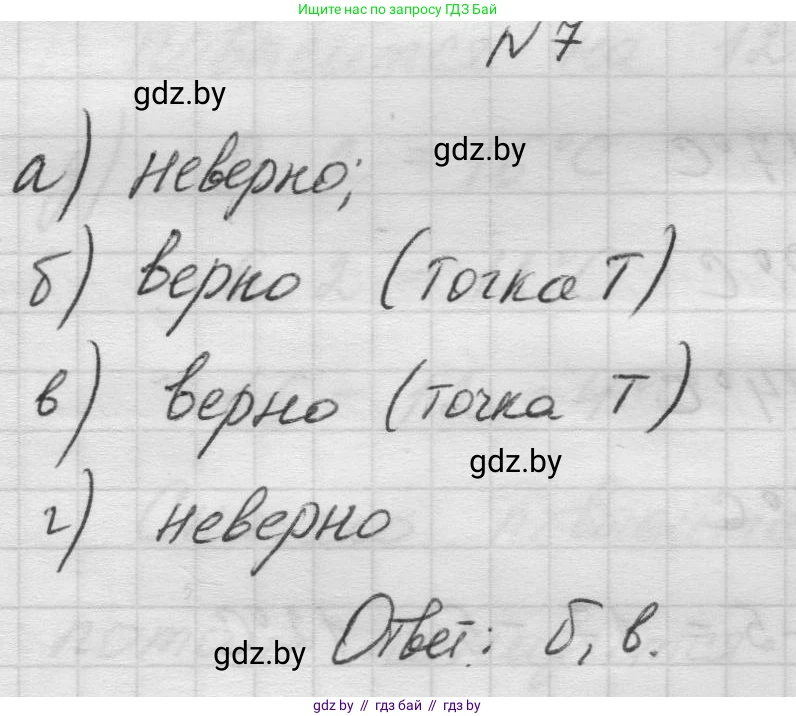 Ищите нас по запросу ГДЗ Бай
N 7
gdz.by
gdz.by
а) неверно;
б) верно (точка Т)
в) верно (точка Т)
gdz.by
г) неверно
gdz.by
Ответ: б, в.
gdz.by // гдз бай // гдз by